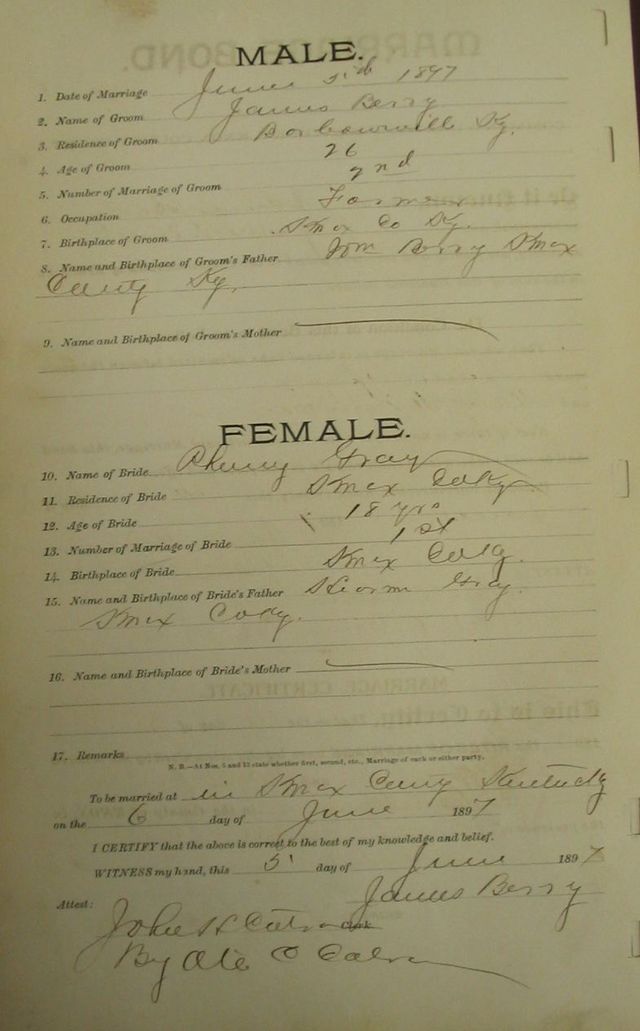 MALE.
1. Date of Marriage June 5th 1897
2. Name of Groom James Berry
3. Residence of Groom Barbourvill Ky.
4. Age of Groom 26
5. Number of Marriage of Groom 2nd
6. Occupation Farmer
7. Birthplace of Groom Knox Co Ky.
8. Name and Birthplace of Groom's Father Wm Berry Knox
County Ky.
9. Name and Birthplace of Groom's Mother
FEMALE.
10. Name of Bride Gray
11. Residence of Bride Knox Co Ky
12. Age of Bride 18 yrs
13. Number of Marriage of Bride 1st
14. Birthplace of Bride Knox Co Ky.
15. Name and Birthplace of Bride's Father Gray.
Knox Co Ky.
16. Name and Birthplace of Bride's Mother
17. Remarks
N. B.—At Nos. 5 and 13 state whether first, second, etc., Marriage of each or either party.
To be married at in Knox County Kentucky
on the 6 day of June 1897
I CERTIFY that the above is correct to the best of my knowledge and belief.
WITNESS my hand, this 5 day of June 1897
James Berry
Attest:
John H Clerk
By C